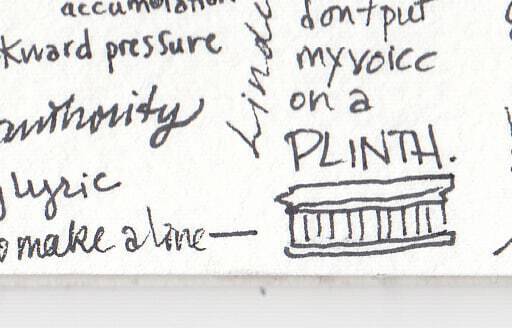 accumulation
kward pressure
authority
lyric
o make a line —
dont put
my voice
on a
PLINTH.